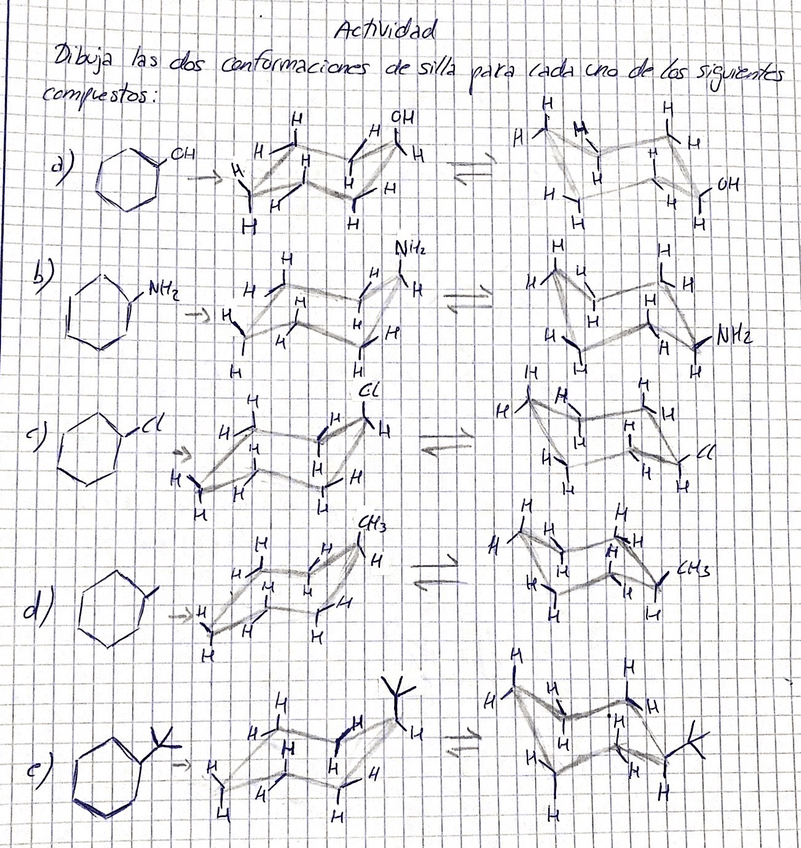 Actividad
Dibuja las dos conformaciones de silla para cada uno de los siguientes
compuestos:
a) OH → H H H H H H H H H OH H ⇌ H H H H H H H H H OH H
b) NH2 → H H H H H H H H H NH2 H ⇌ H H H H H H H H H NH2 H
c) Cl → H H H H H H H H H Cl H ⇌ H H H H H H H H H Cl H
d) → H H H H H H H H H CH3 H ⇌ H H H H H H H H H CH3 H
e) → H H H H H H H H H H ⇌ H H H H H H H H H H